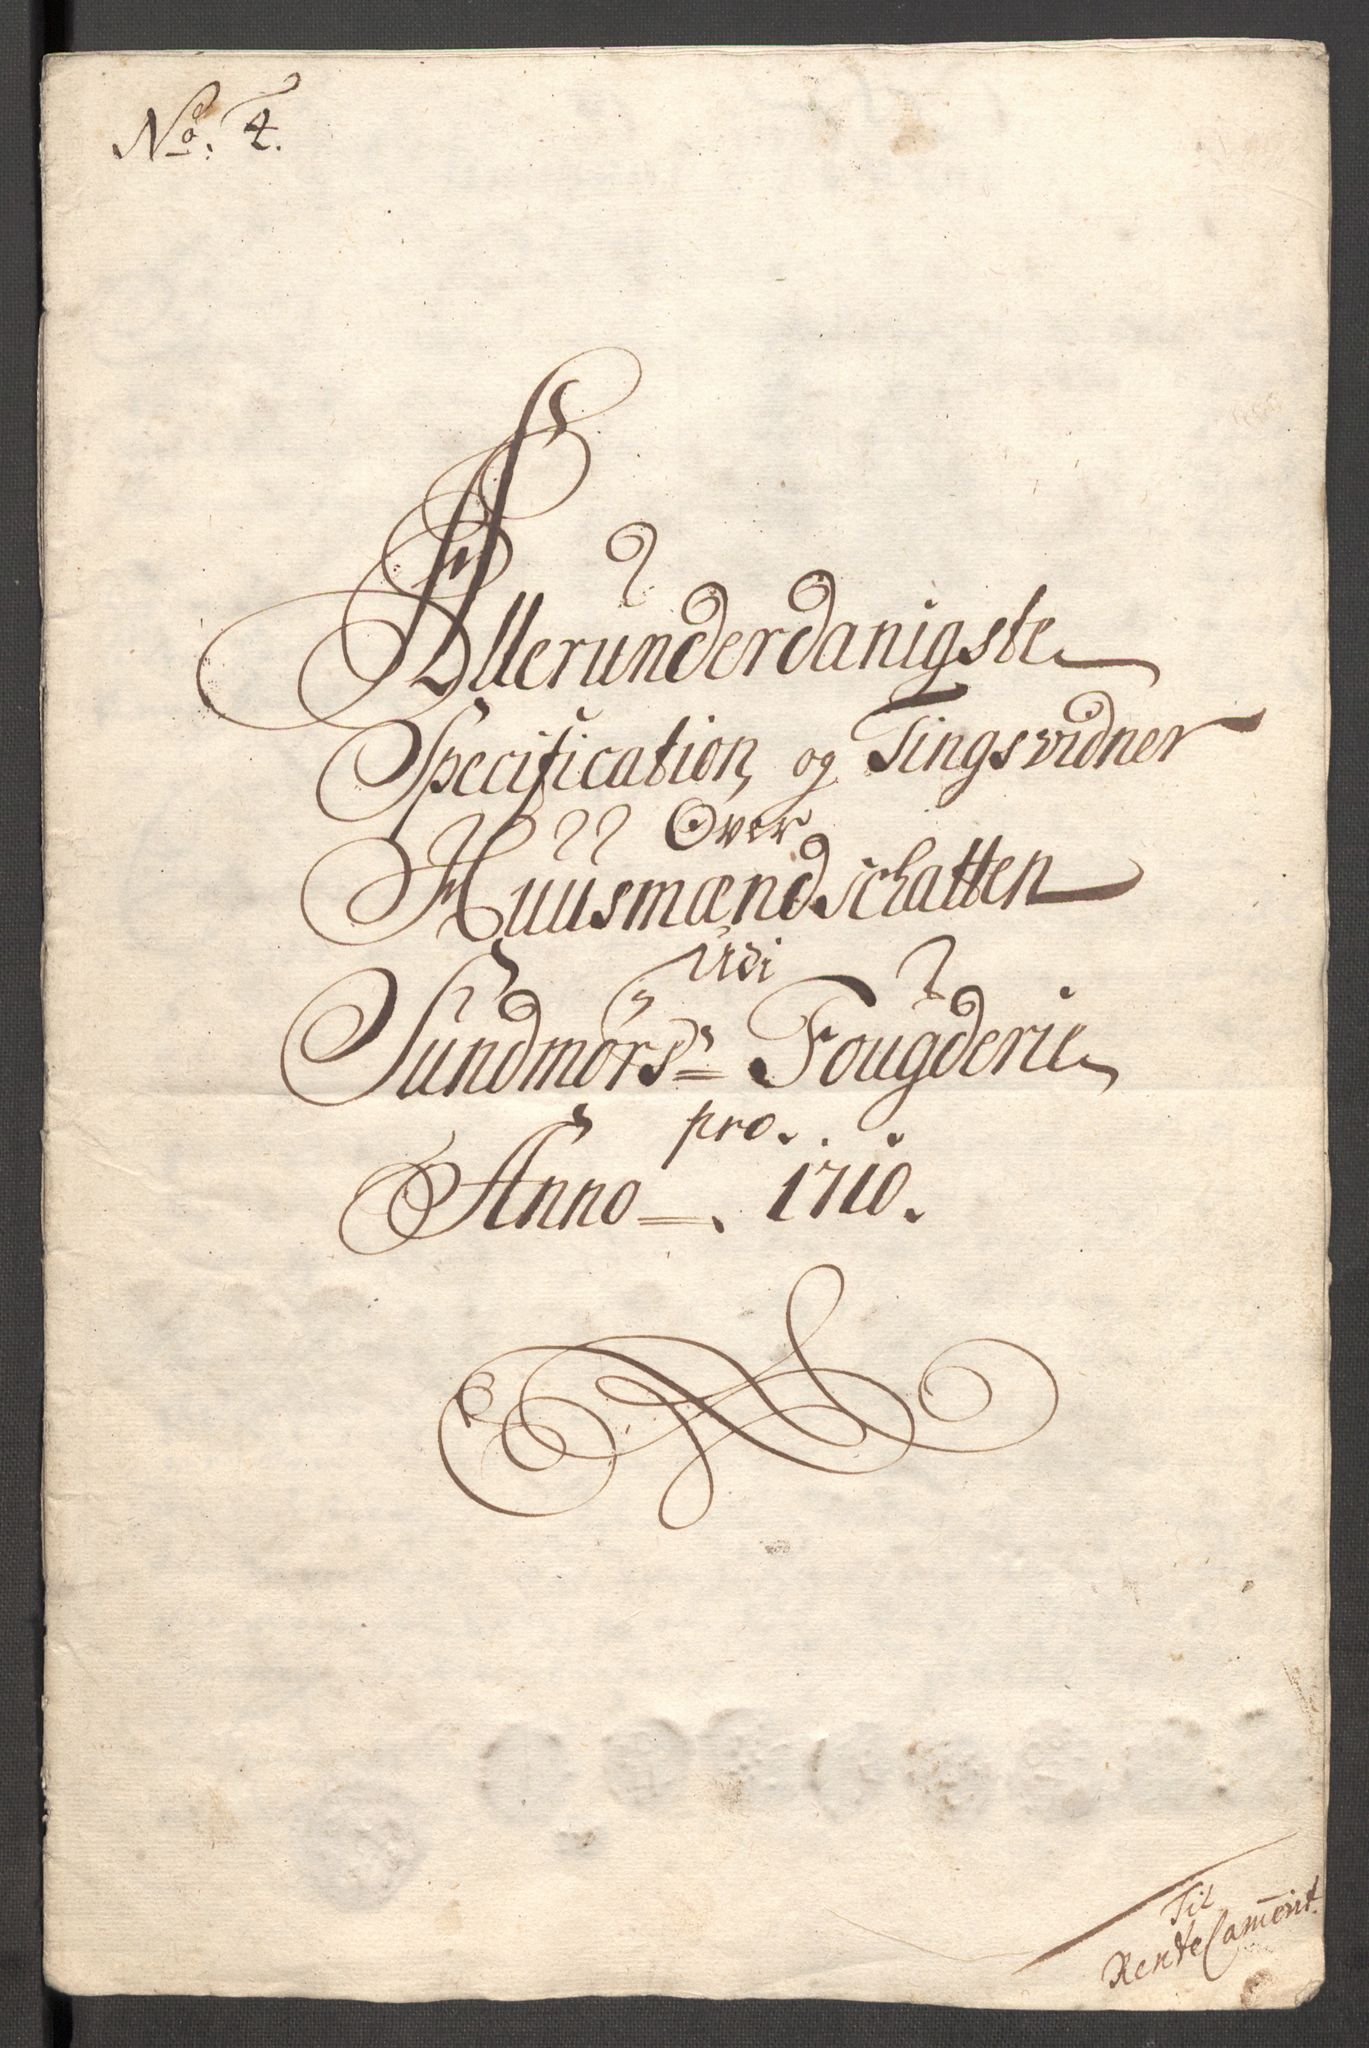 No. 4.
Allerunderdanigste
Specification, og Tingsvidner
Over
Huusmændschatten
Udi
Sundmörs= Fougderie
pro.
Anno =. 1710.
Til
RenteCameret.